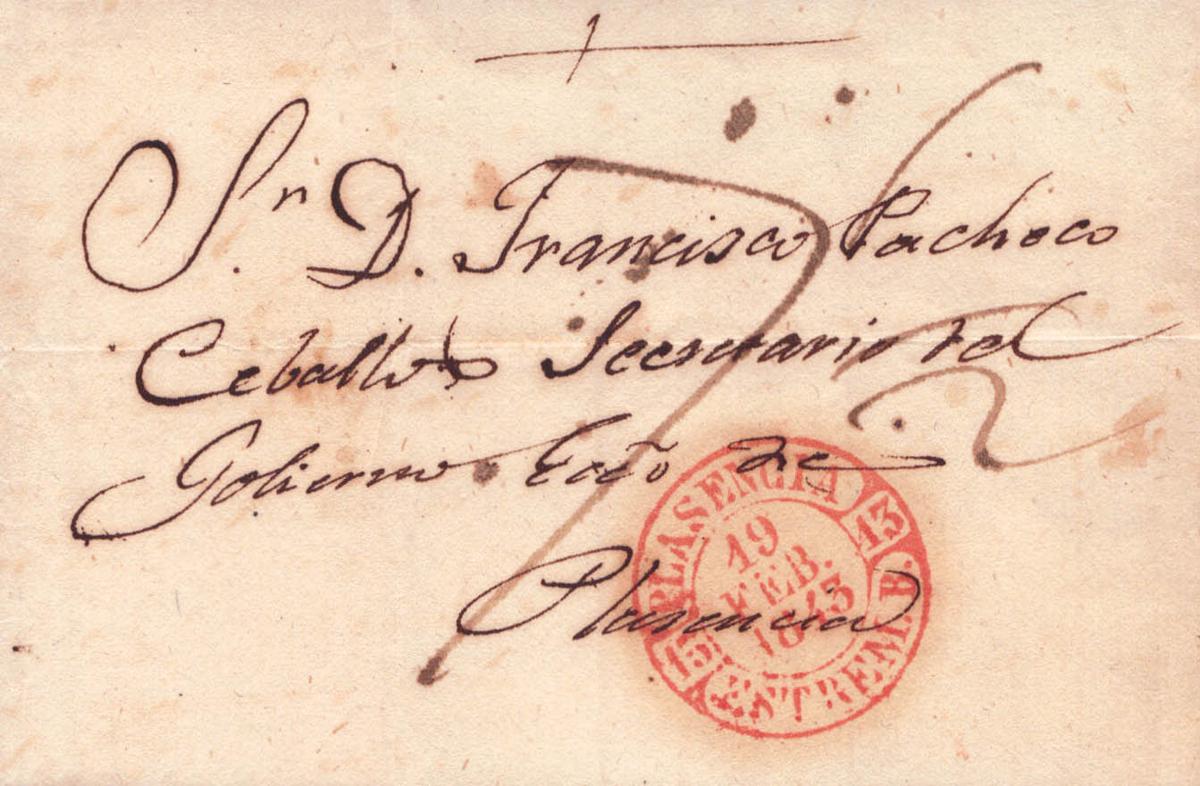 Sn. D. Francisco Pacheco
Ceballos Secretario del
Gobierno Ecco de
Plasencia
PLASENCIA 13
19
FEB.
1845
15 ESTREM. B.